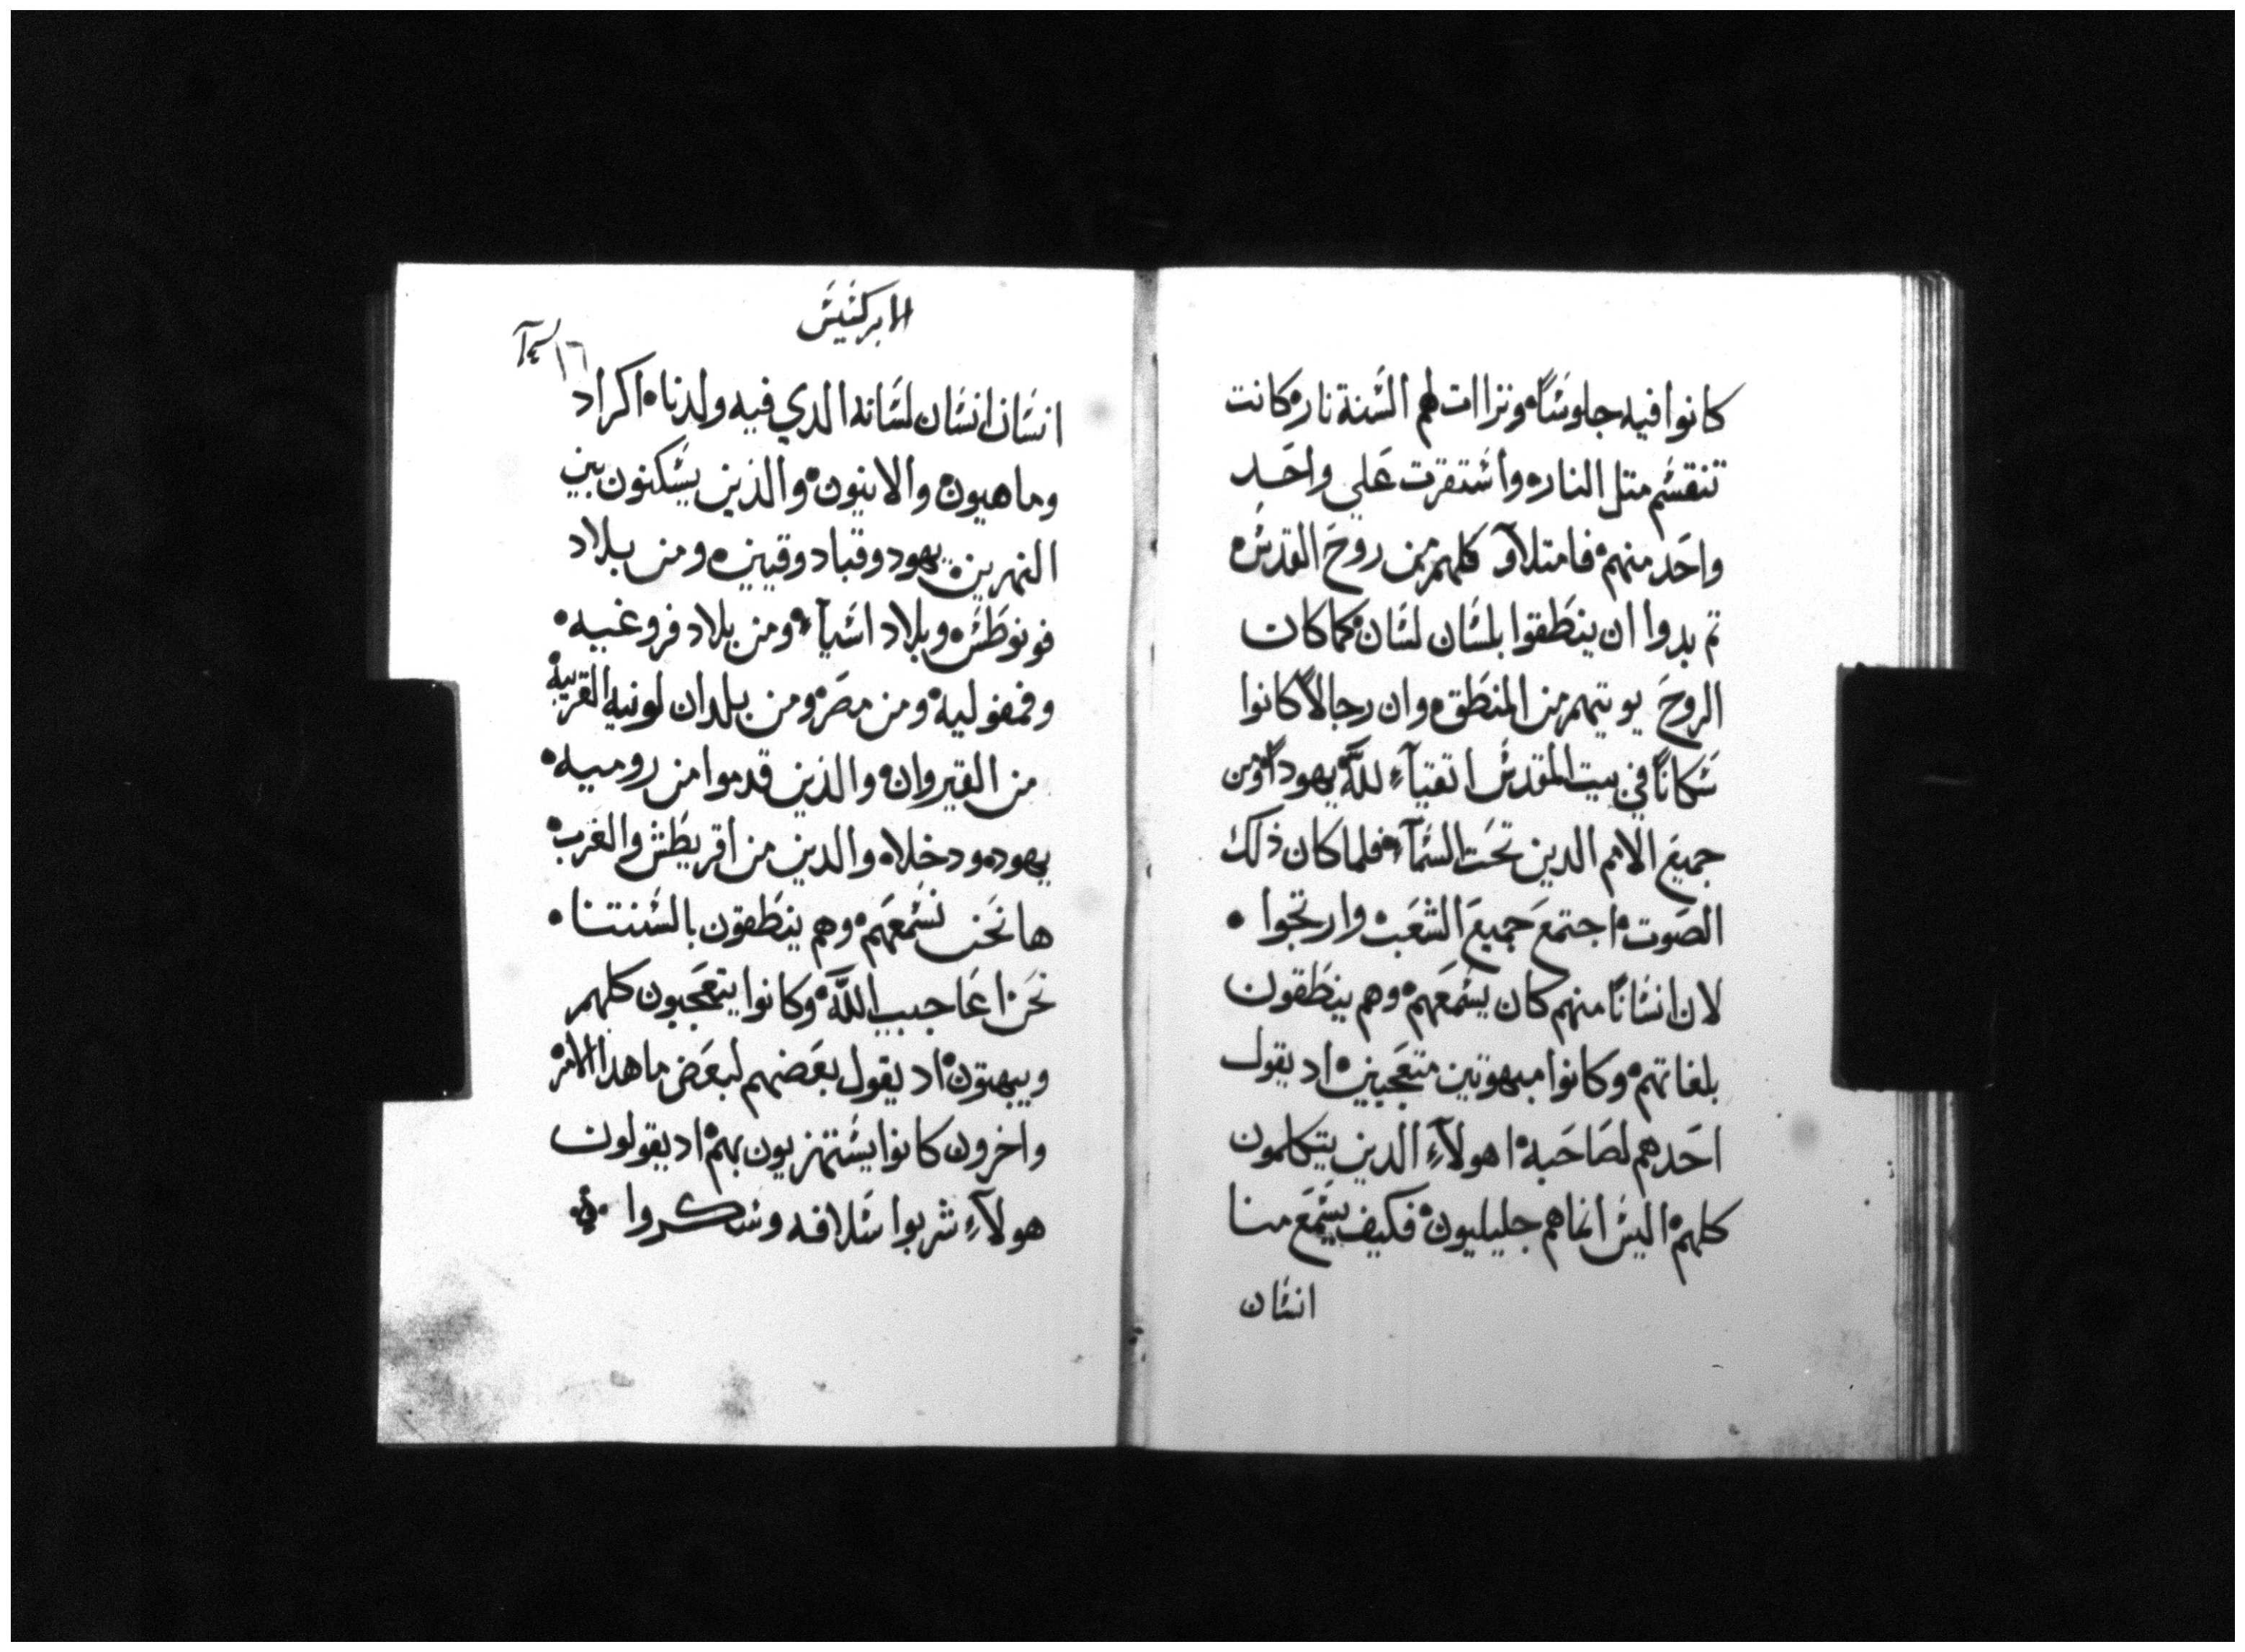 كانوا فيه جلوسًا ٥ وتراات لهم السنة نار ٥ كانت
تنقسم متل النار ٥ واستقرت علي واحد
واحد منهم ٥ فامتلاوَ كلهم من روح القدس ٥
تم بدوا ان ينطقوا بلسان لسان ٥ كما كان
الروح يوتيهم من المنطق ٥ وان رجالاً كانوا
سكانًا في بيت المقدس اتقيآء لله ٥ يهوداً ومن
جميع الامم الدين تحت السمآء ٥ فلما كان ذلك
الصوت ٥ اجتمع جميع الشعب ٥ وارتجوا ٥
لان انسانًا منهم كان يسمعهم ٥ وهم ينطقون
بلغاتهم ٥ وكانوا مبهوتين متعجبين ٥ اد يقول
احدهم لصاحبه ٥ اهولآء الدين يتكلمون
كلهم ٥ اليس انما هم جليليون ٥ فكيف يسمع منا
انسان
الابركسيس
١٦
انسان انسان لسانه الدي فيه ولدنا ٥ اكراد
وماهيون ٥ والانيون ٥ والذين يسكنون بين
النهرين ٥ يهود وقبادوقيين ٥ ومن بلاد
فونوطس ٥ وبلاد اسيآء ٥ ومن بلاد فروغيه ٥
وفمفوليه ٥ ومن مصر ٥ ومن بلدان لونيه القريبة
من القيروان ٥ والذين قدموا من روميه ٥
يهود ٥ ودخلاه والدين من أقريطش والغرب ٥
ها نحن نسمعهم ٥ وهم ينطقون بالسنتنا ٥
نحن اعاجيب الله ٥ وكانوا يتعجبون كلهم
ويبهتون ٥ اد يقول بعضهم لبعض ما هدا الامر ٥
واخرون كانوا يستهزيون بهم ٥ اد يقولون
هولآء شربوا سلافه وسكروا